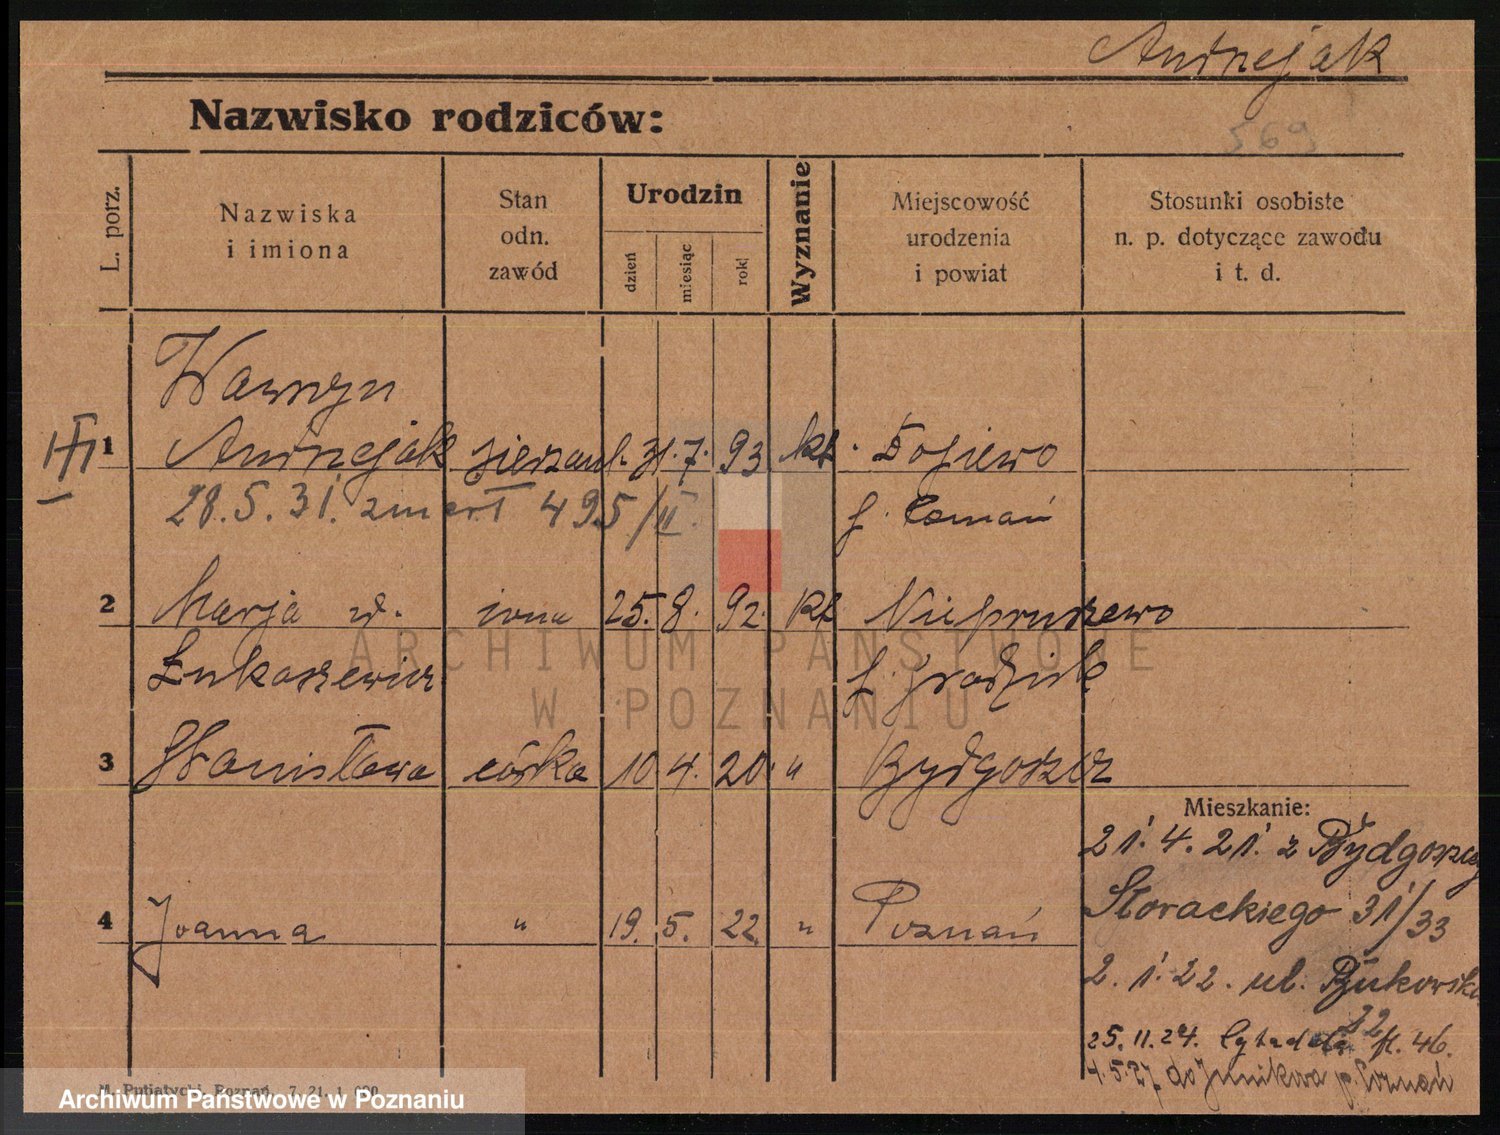 Andrzejak
Nazwisko rodziców:
569
L. porz.
Nazwiska
i imiona
Stan
odn.
zawód
Urodzin
dzień
miesiąc
rok
Wyznanie
Miejscowość
urodzenia
i powiat
Stosunki osobiste
n. p. dotyczące zawodu
i t. d.
Wawrzyn
III 1 Andrzejak sierżant. 31. 7. 93 kt. Dopiewo
28. 5. 31. zmarł 495/II. p. Poznań
2 Marja ur. żona 25. 8. 92. kt Niepruszewo
Łukaszewicz p. Grodzisk
3 Stanisława córka 10 4. 20. " Bydgoszcz
Mieszkanie:
21. 4. 21. z Bydgoszczy
Słowackiego 31/33
4 Joanna " 19. 5. 22. " Poznań
2. 1. 22. ul. Bukowska
22
25. 11. 24. Cytadela fl. 46.
4.5.27 do Junikowa p. Poznań
M. Putiatycki, Poznań
ARCHIWUM PAŃSTWOWE
W POZNANIU
Archiwum Państwowe w Poznaniu